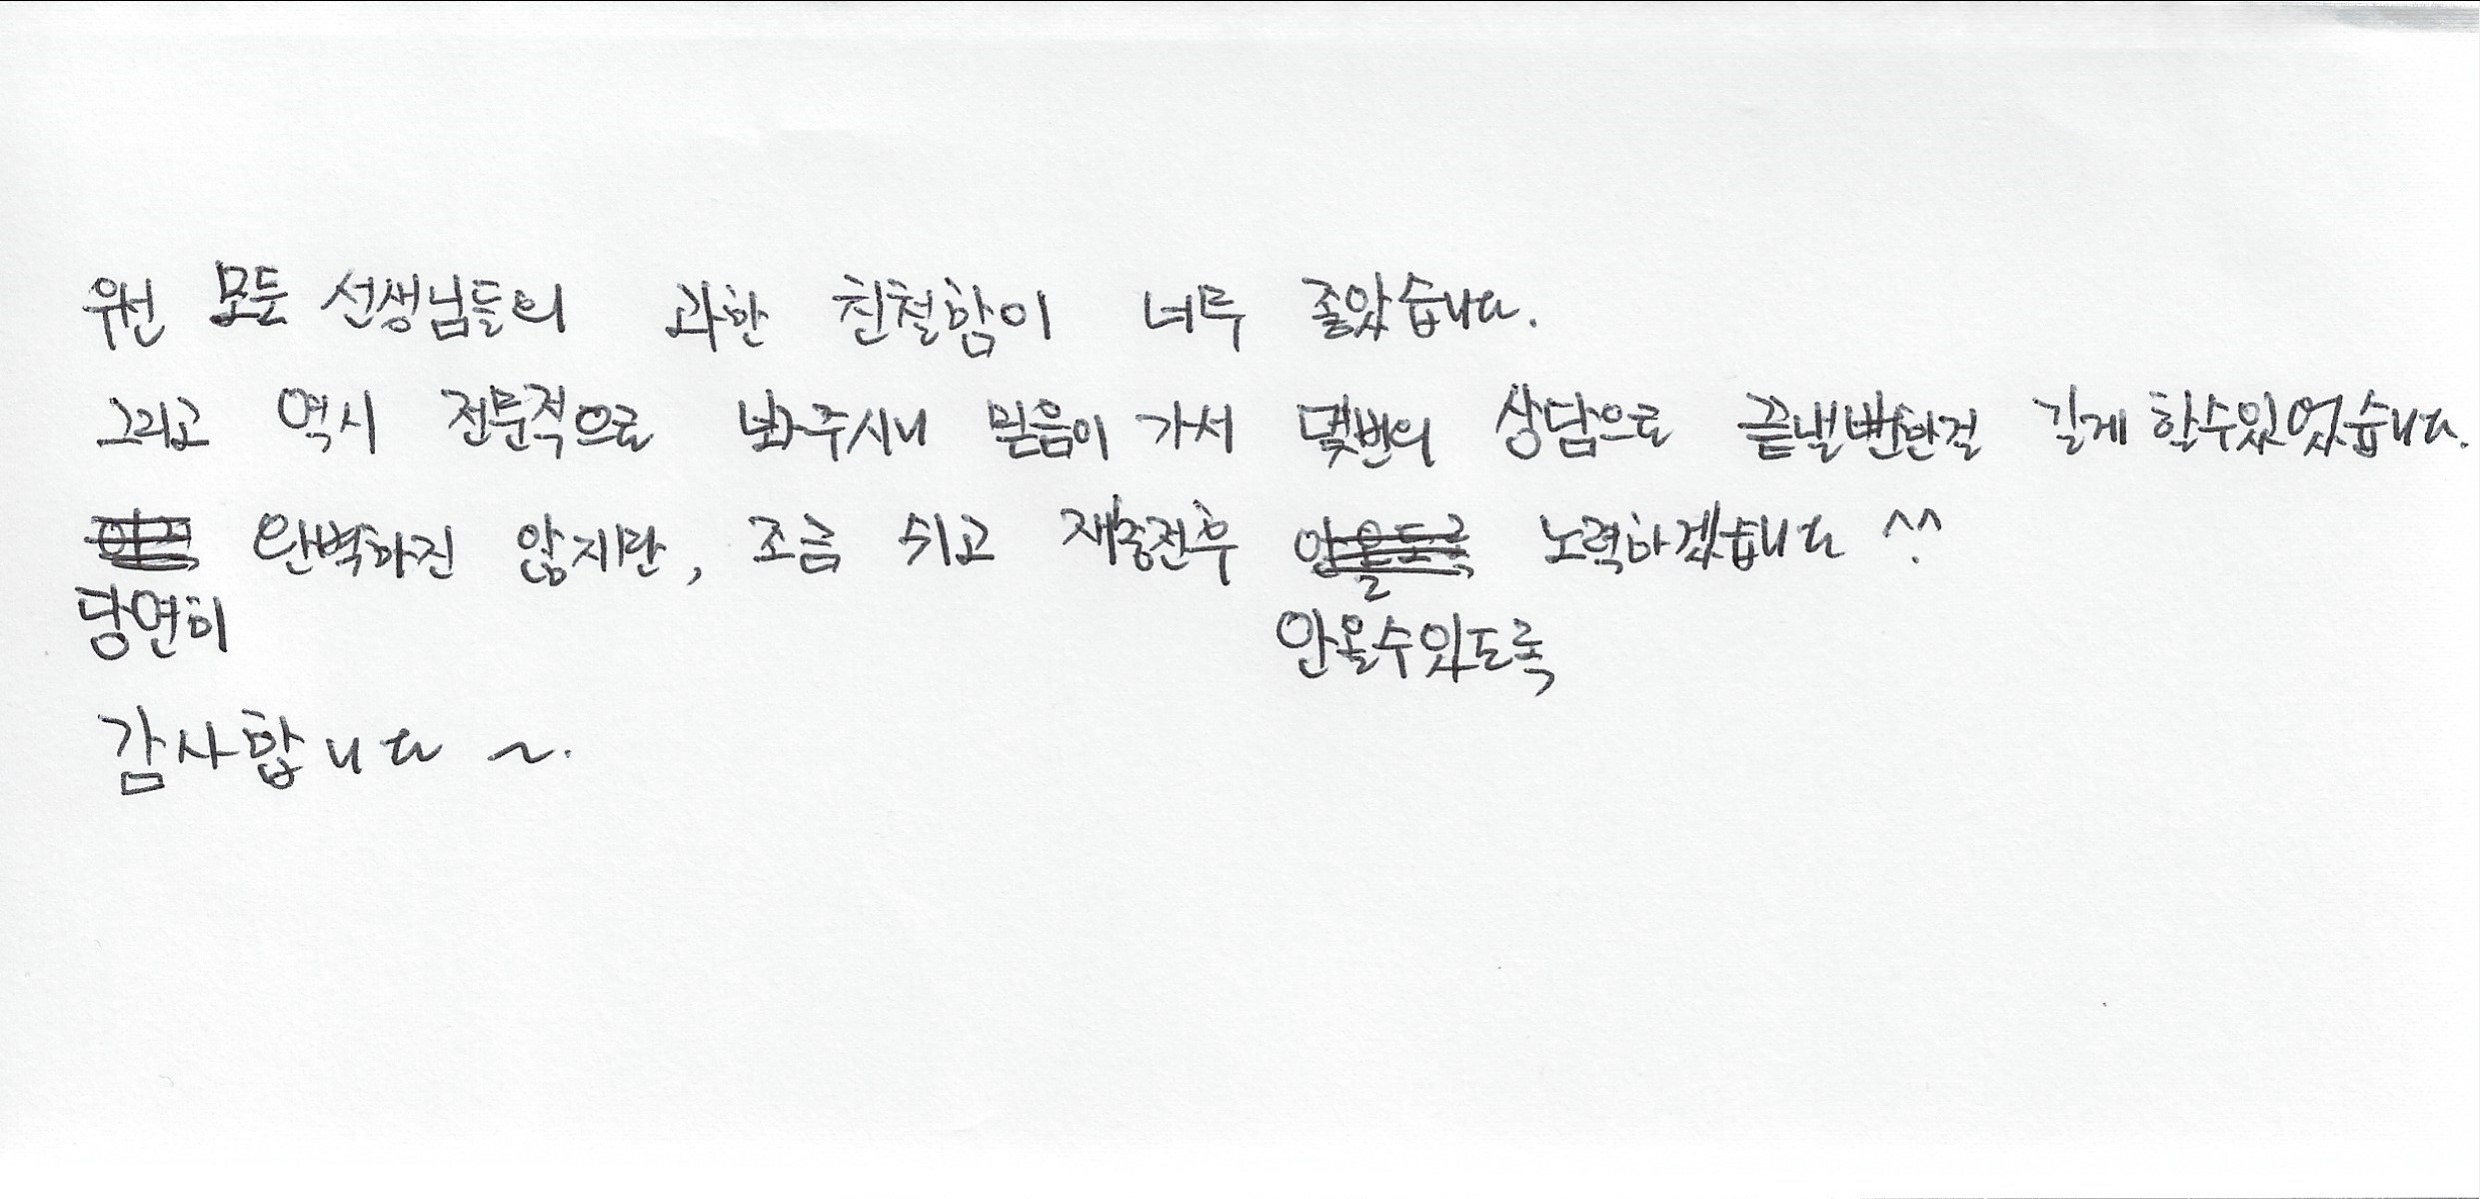 원 모든 선생님들의 과한 친절함이 너무 좋았습니다.
그리고 역시 전문적으로 봐주시니 믿음이 가서 몇번의 상담으로 끝낼뻔한걸 길게 할수있었습니다.
완벽하진 않지만, 조금 쉬고 재충전후 안올도록 노력하겠습니다 ^^
당연히 안올수있도록
감사합니다 ~.